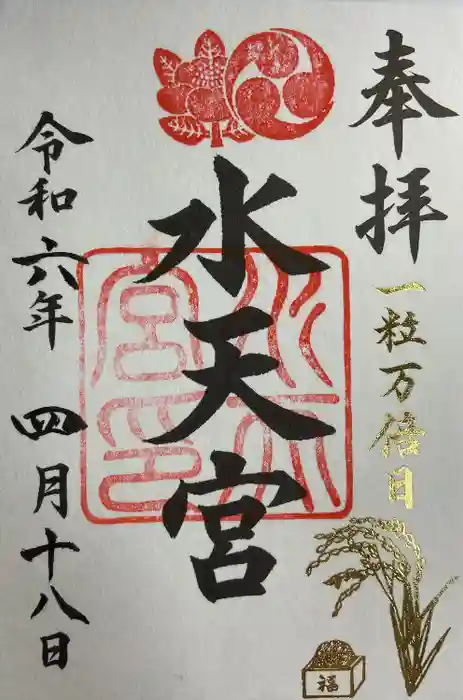 奉拝
一粒万倍日
水天宮
水天宮印
令和六年 四月十八日
福